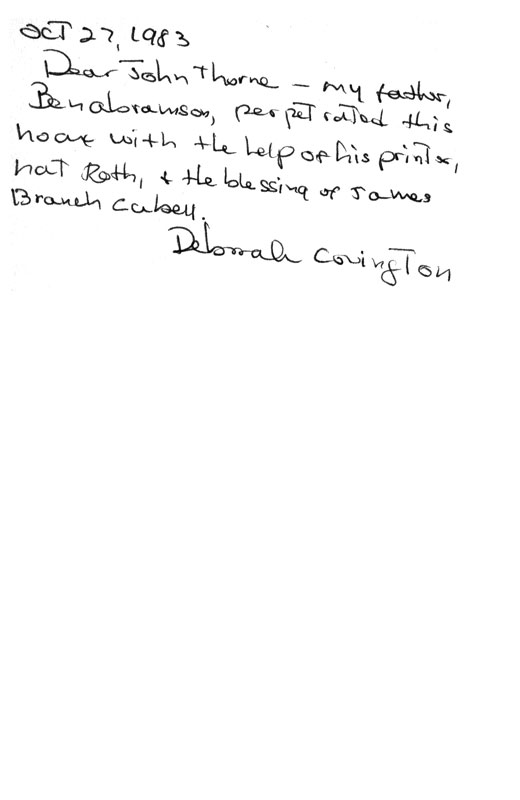 OCT 27, 1983
Dear John Thorne – my father,
Ben Abramson, perpetrated this
hoax with the help of his printer,
nat Roth, & the blessing of James
Branch Cabell.
Deborah Covington